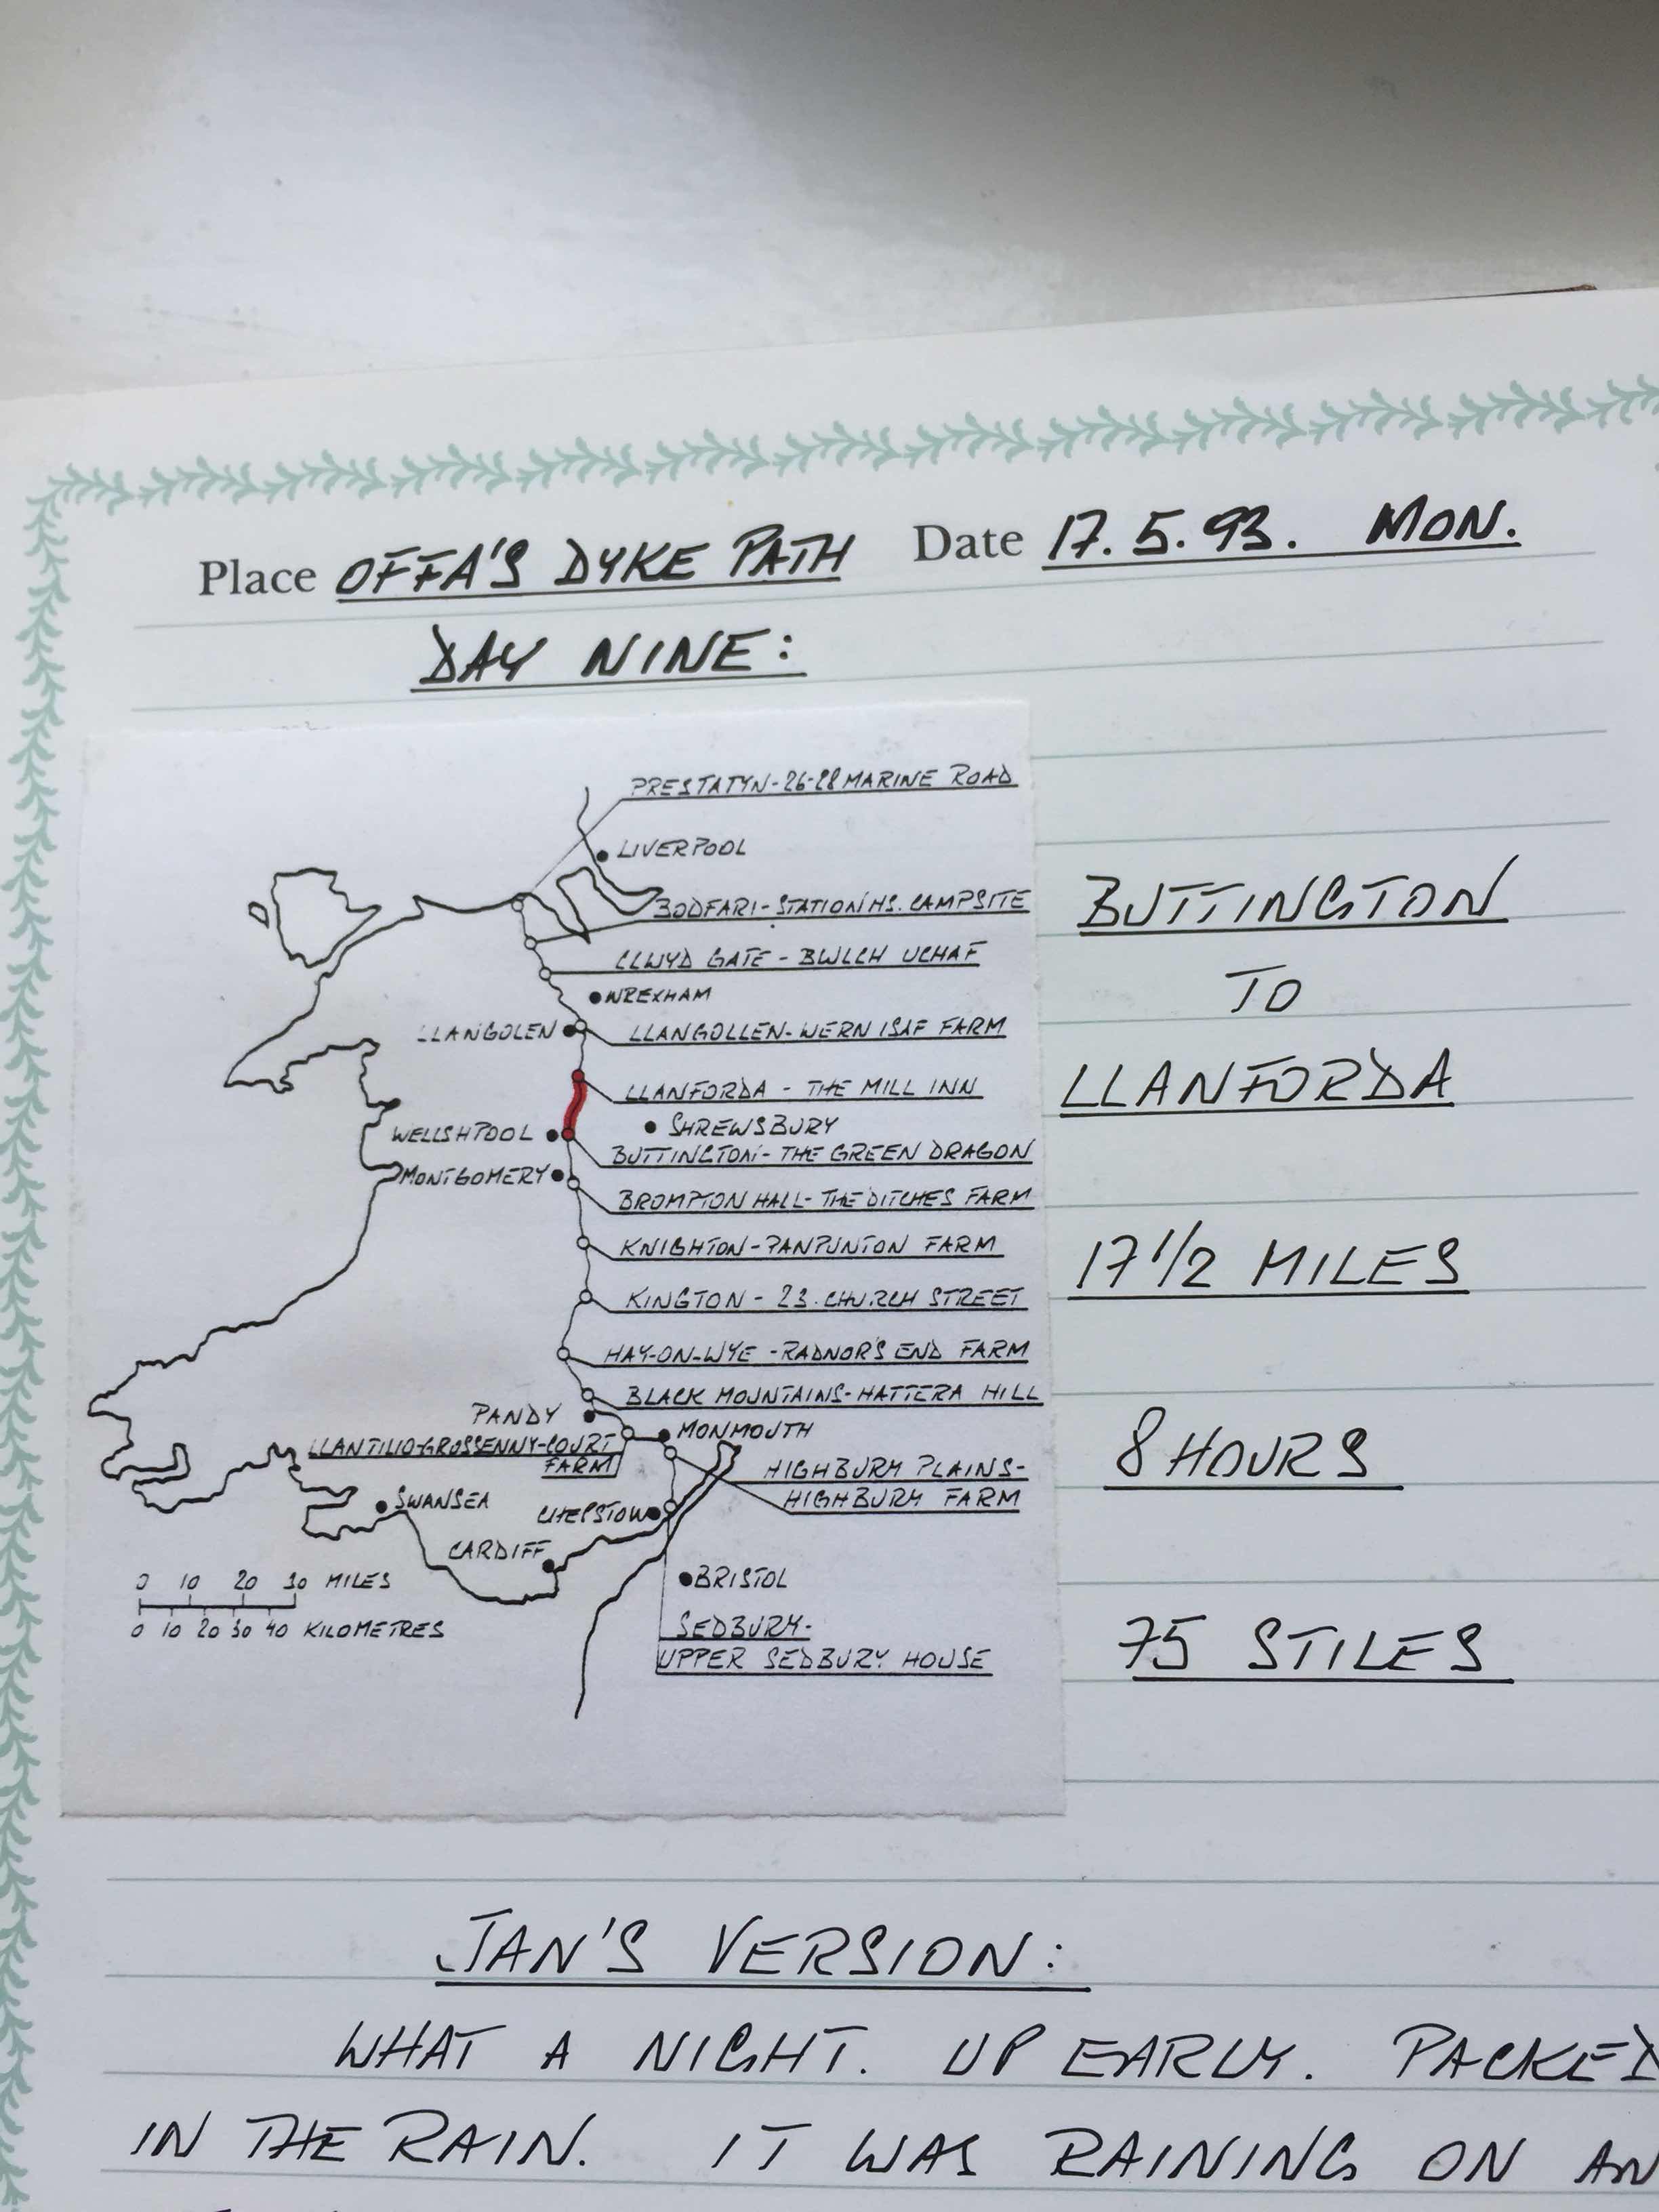 Place OFFA'S DYKE PATH Date 17.5.93. MON.
DAY NINE:
PRESTATYN-26-28 MARINE ROAD
LIVERPOOL
BODFARI-STATION HS. CAMPSITE
CLWYD GATE - BWLCH UCHAF
WREXHAM
LLANGOLEN
LLANGOLLEN-WERN ISAF FARM
LLANFORDA - THE MILL INN
WELLSHPOOL
SHREWSBURY
BUTTINGTON- THE GREEN DRAGON
MONTGOMERY
BROMPTON HALL- THE DITCHES FARM
KNIGHTON-PANPUNTON FARM
KINGTON - 23. CHURCH STREET
HAY-ON-WYE -RADNOR'S END FARM
BLACK MOUNTAINS-HATTERA HILL
PANDY
MONMOUTH
LLANTILIO-GROSSENNY-COURT
FARM
HIGHBURY PLAINS-
HIGHBURY FARM
SWANSEA
CHEPSTOW
CARDIFF
BRISTOL
0 10 20 30 MILES
0 10 20 30 40 KILOMETRES
SEDBURY-
UPPER SEDBURY HOUSE
BUTTINGTON
TO
LLANFORDA
17 1/2 MILES
8 HOURS
75 STILES
JAN'S VERSION:
WHAT A NIGHT. UP EARLY. PACKED
IN THE RAIN. IT WAS RAINING ON AN